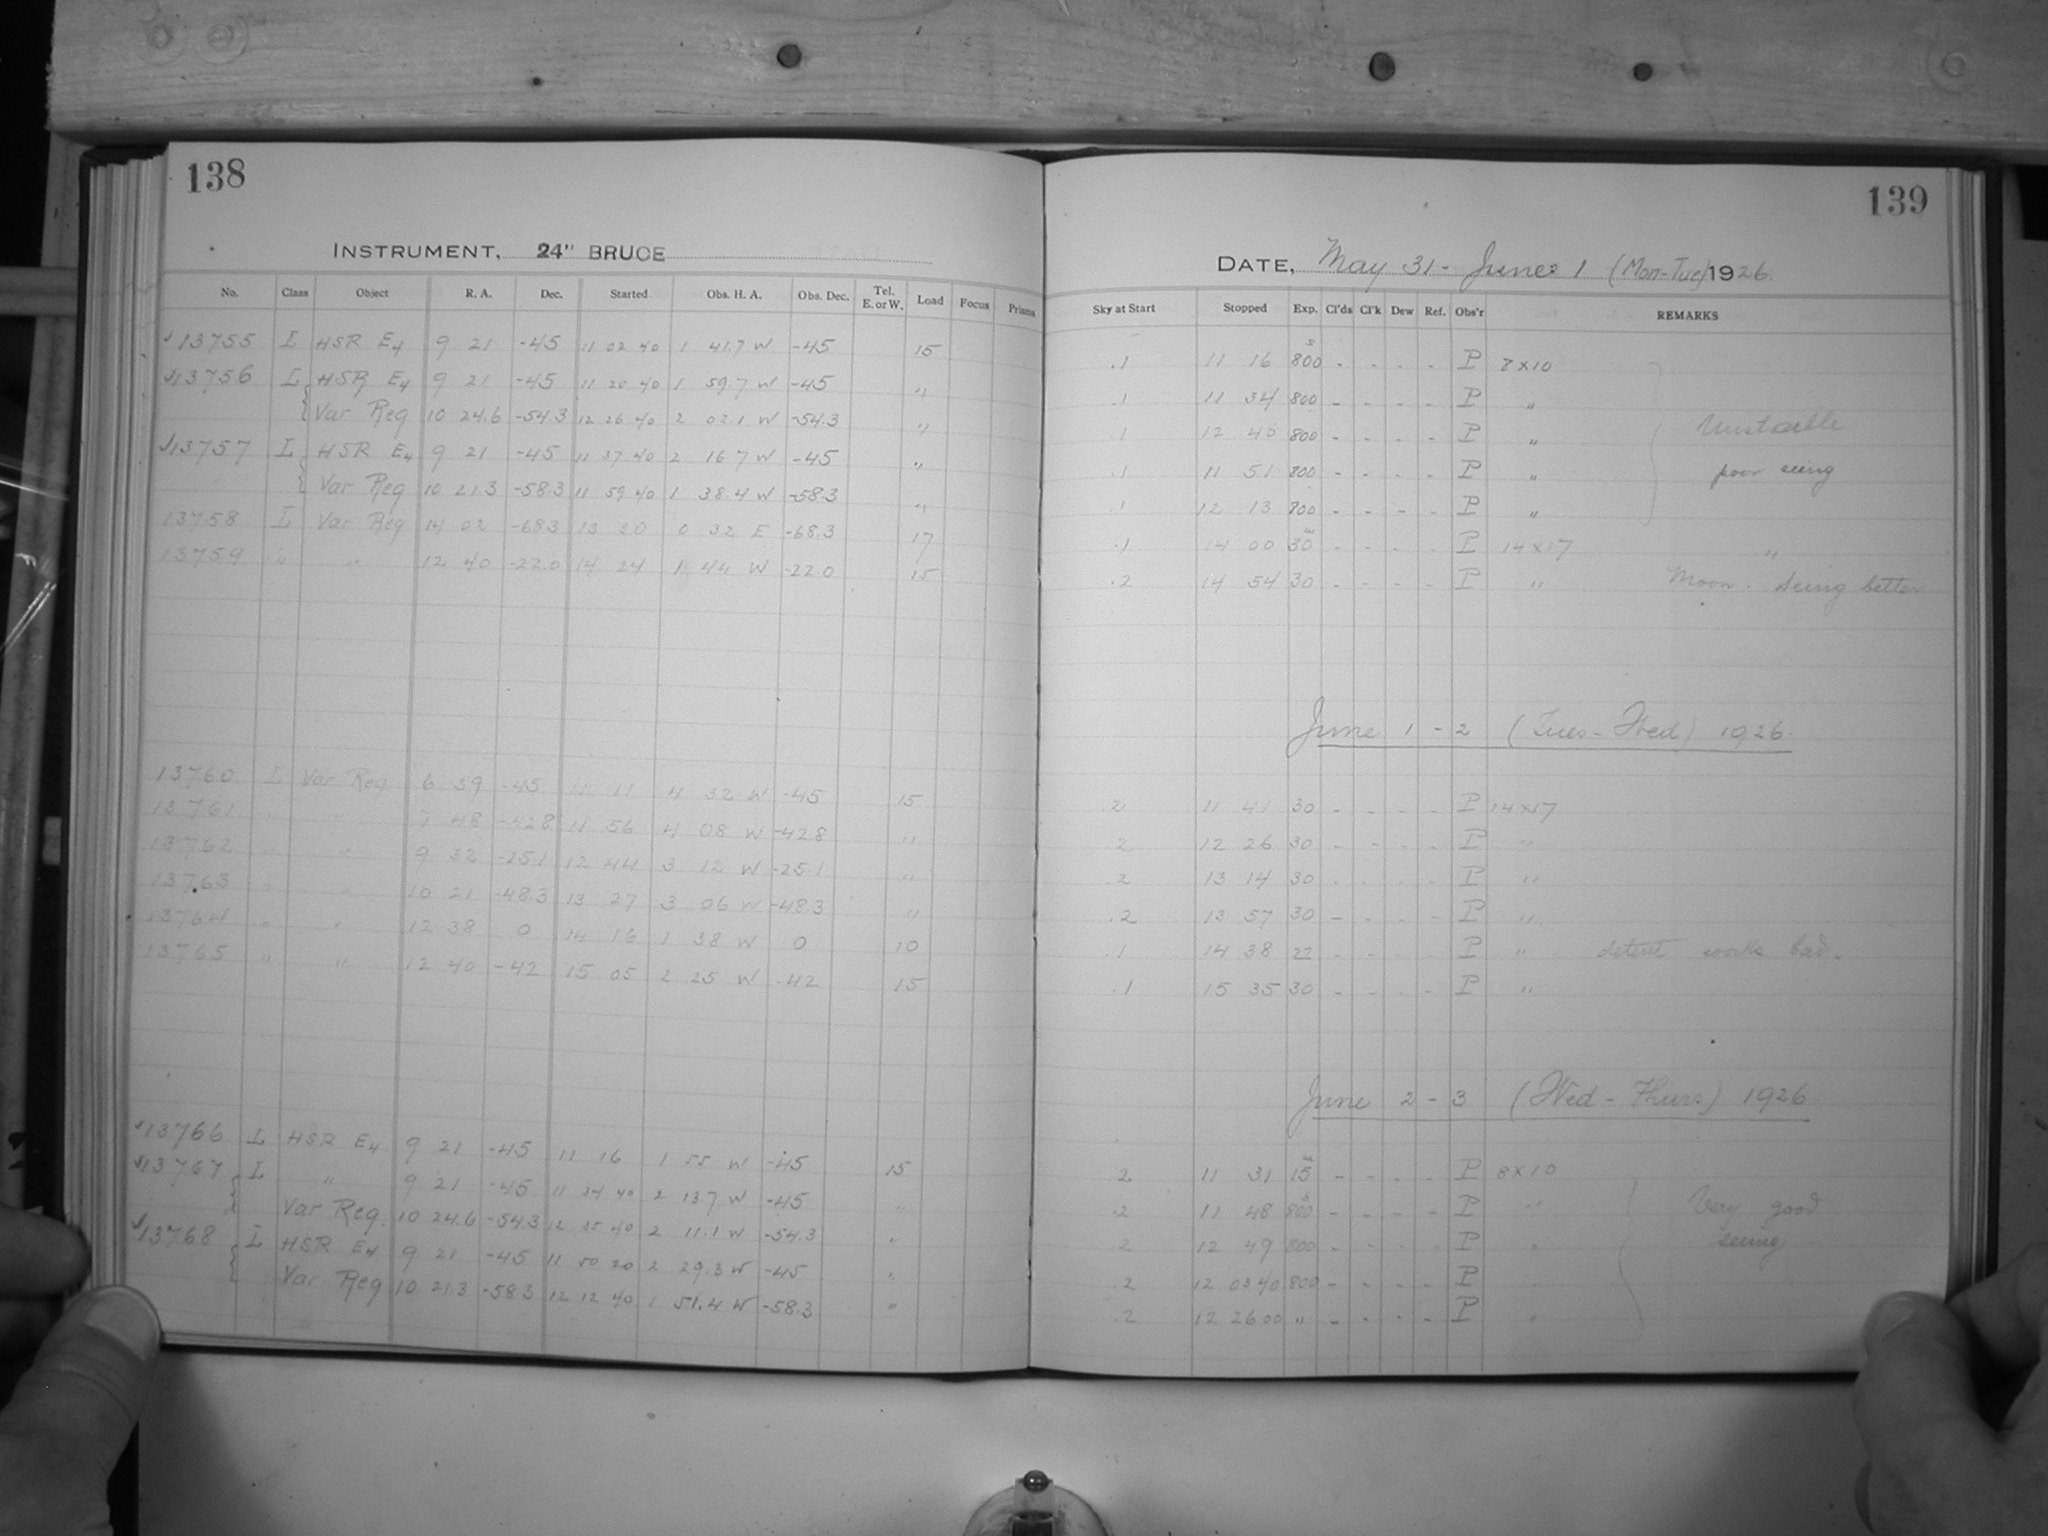 138
INSTRUMENT, 24" BRUCE
No. Class Object R. A. Dec. Started Obs. H. A. Obs. Dec. Tel. E. or W. Load Focus Prisms
√13755 L HSR E4 9 21 -45 11 02 40 1 41.7 W -45 15
√13756 L HSR E4 9 21 -45 11 20 40 1 59.7 W -45 "
Var Reg 10 24.6 -54.3 12 26 40 2 02.1 W -54.3 "
√13757 L HSR E4 9 21 -45 11 37 40 2 16.7 W -45 "
Var Reg 10 21.3 -58.3 11 59 40 1 38.4 W -58.3 "
13758 L Var Reg 14 02 -68.3 13 30 0 32 E -68.3 17
13759 " " 12 40 -22.0 14 24 1 44 W -22.0 15
13760 L Var Reg 6 39 -45 11 11 4 32 W -45 15
13761 " " 7 48 -42.8 11 56 4 08 W -42.8 "
13762 " " 9 32 -25.1 12 44 3 12 W -25.1 "
13763 " " 10 21 -48.3 13 27 3 06 W -48.3 "
13764 " " 12 38 0 14 16 1 38 W 0 10
13765 " " 12 40 -42 15 05 2 25 W -42 15
√13766 L HSR E4 9 21 -45 11 16 1 55 W -45 15
√13767 L " 9 21 -45 11 34 40 2 13.7 W -45 "
Var Reg. 10 24.6 -54.3 12 35 40 2 11.1 W -54.3 "
√13768 L HSR E4 9 21 -45 11 50 20 2 29.3 W -45 "
Var. Reg 10 21.3 -58.3 12 12 40 1 51.4 W -58.3 "
139
DATE, May 31 - June 1 (Mon-Tue) 1926.
Sky at Start Stopped Exp. Cl'ds Cl'k Dew Ref. Obs'r REMARKS
.1 11 16 800s - - - - P 8x10
.1 11 34 800 - - - - P "
.1 12 40 800 - - - - P " Unstable
.1 11 51 800 - - - - P " poor seeing
.1 12 13 800 - - - - P "
.1 14 00 30m - - - - P 14x17 "
.2 14 54 30 - - - - P " Moon. Seeing better
June 1 - 2 (Tues - Wed) 1926.
.2 11 41 30 - - - - P 14x17
.2 12 26 30 - - - - P "
.2 13 14 30 - - - - P "
.2 13 57 30 - - - - P "
.1 14 38 22 - - - - P " detent works bad.
.1 15 35 30 - - - - P "
June 2 - 3 (Wed - Thurs) 1926
.2 11 31 15m - - - - P 8x10
.2 11 48 800s - - - - P " Very good
.2 12 49 800 - - - - P " seeing
.2 12 03 40 800 - - - - P "
.2 12 26 00 " - - - - P "